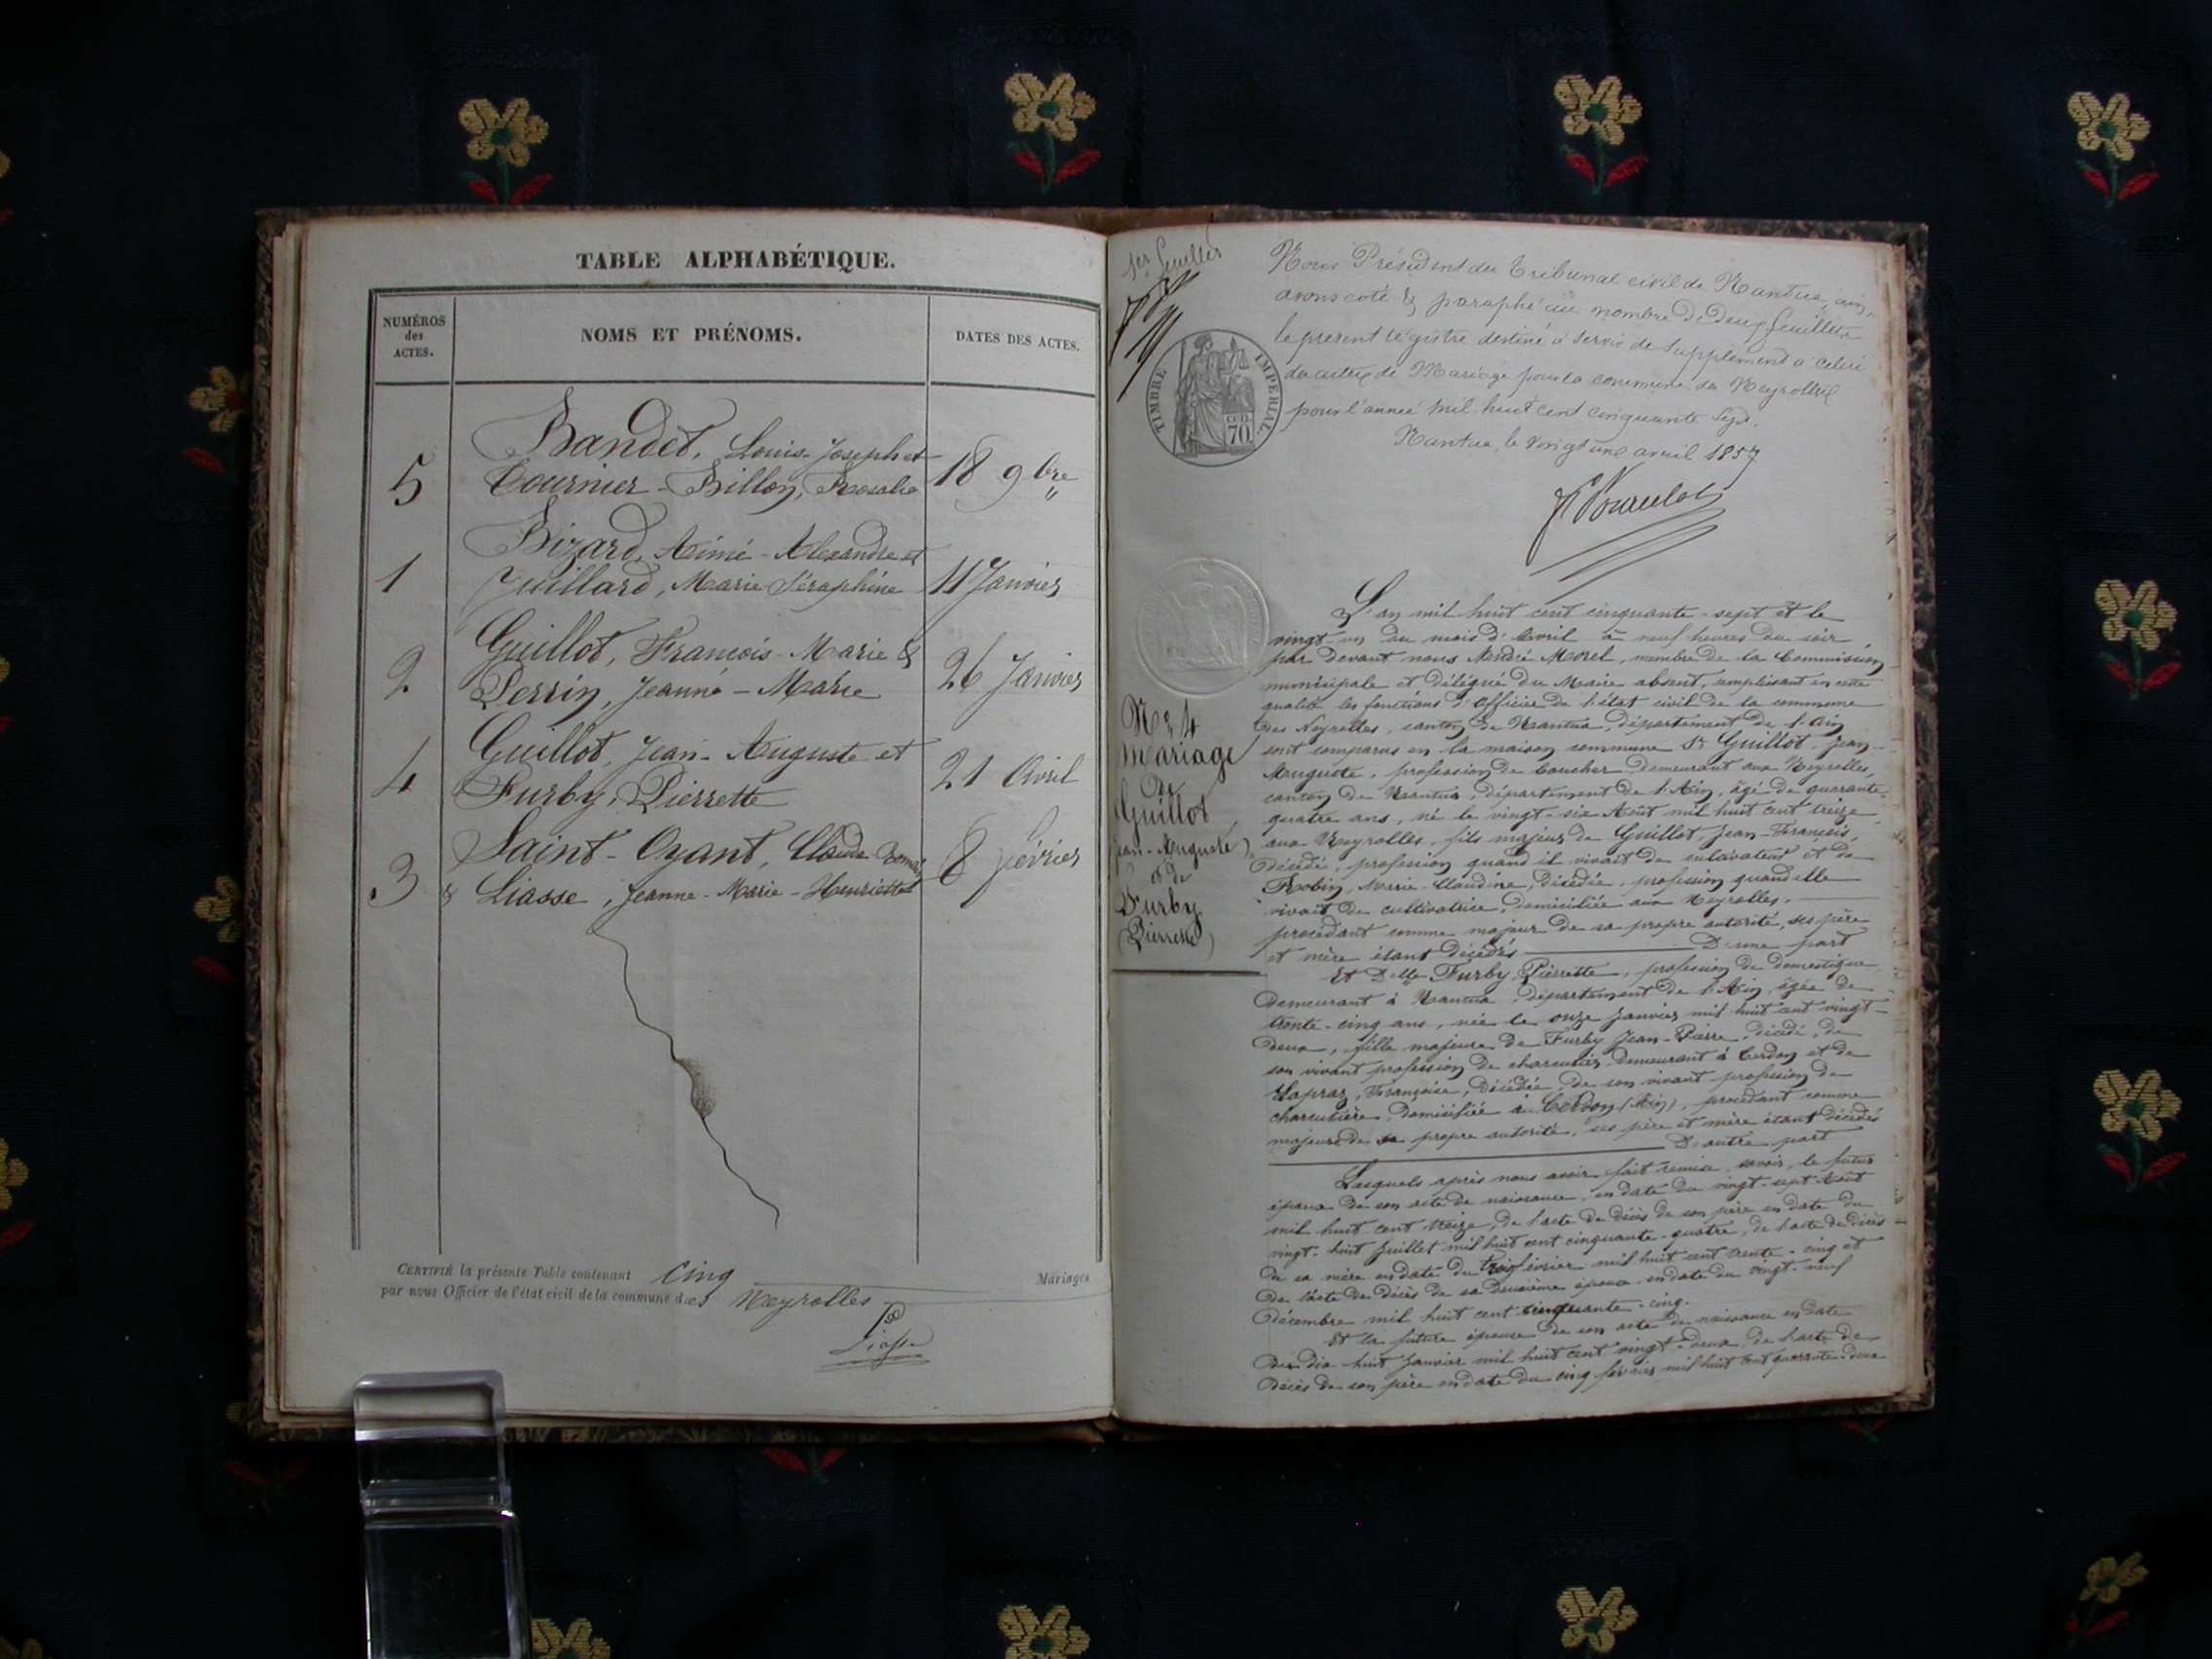 TABLE ALPHABÉTIQUE.
NUMÉROS
des
ACTES.
NOMS ET PRÉNOMS.
DATES DES ACTES.
Bandet, Louis-Joseph et
5 Tournier-Billon, Rosalie 18 9bre
Bizard, Aimé-Alexandre et
1 Juillard, Marie Séraphine 11 Janvier
Guillot, François-Marie &
2 Perrin, Jeanne-Marie 26 Janvier
Guillot, Jean-Auguste et
4 Furby, Pierrette 21 Avril
Saint-Oyant, Claude
3 & Liasse, Jeanne-Marie-Henriette 8 février
CERTIFIÉ la présente Table contenant Cinq Mariages
par nous Officier de l'état civil de la commune des Neyrolles
Liasse
1er feuillet
Nous Président du Tribunal civil de Nantua, ain,
avons coté & paraphé au nombre de deux feuillets
le présent régistre destiné à servir de supplément à celui
des actes de Mariage pour la commune des Neyrolles
pour l'année mil huit cent cinquante sept.
Nantua, le vingt un avril 1857
TIMBRE IMPÉRIAL
70
L'an mil huit cent cinquante-sept et le
vingt-un du mois d'Avril à neuf heures du soir
par devant nous André Morel, membre de la Commission
municipale et délégué du Maire absent, remplissant en cette
qualité les fonctions d'officier de l'état civil de la commune
des Neyrolles, canton de Nantua, département de l'Ain
sont comparus en la maison commune Sr Guillot, Jean-
Auguste, profession de boucher demeurant aux Neyrolles,
canton de Nantua, département de l'Ain, âgé de quarante-
quatre ans, né le vingt-six Août mil huit cent treize
aux Neyrolles, fils majeur de Guillot, Jean-François,
décédé, profession quand il vivait de cultivateur et de
Robin, Marie-Claudine, décédée, profession quand elle
vivait de cultivatrice, domiciliée aux Neyrolles.
procédant comme majeur de sa propre autorité, ses père
et mère étant décédés D'une part
Et Delle Furby, Pierrette, profession de domestique,
demeurant à Nantua, département de l'Ain, âgée de
trente-cinq ans, née le onze Janvier mil huit cent vingt-
deux, fille majeure de Furby Jean-Pierre, décédé, de
son vivant profession de charcutier demeurant à Cerdon et de
Lapraz, Françoise, décédée, de son vivant profession de
charcutière domiciliée à Cerdon (Ain), procédant comme
majeure de sa propre autorité, ses père et mère étant décédés
D'autre part
Lesquels après nous avoir fait remise, savoir, le futur
époux de son acte de naissance, en date du vingt-sept Août
mil huit cent treize, de l'acte de décès de son père en date du
vingt-huit Juillet mil huit cent cinquante-quatre, de l'acte de décès
de sa mère en date du trois février mil huit cent trente-cinq et
de l'acte de décès de sa deuxième épouse en date du vingt-neuf
décembre mil huit cent cinquante-cinq.
Et la future épouse de son acte de naissance en date
du dix-huit Janvier mil huit cent vingt-deux, de l'acte de
décès de son père en date du cinq février mil huit cent quarante-deux
No 4
Mariage
de
Guillot
(Jean-Auguste)
et de
Furby
(Pierrette)